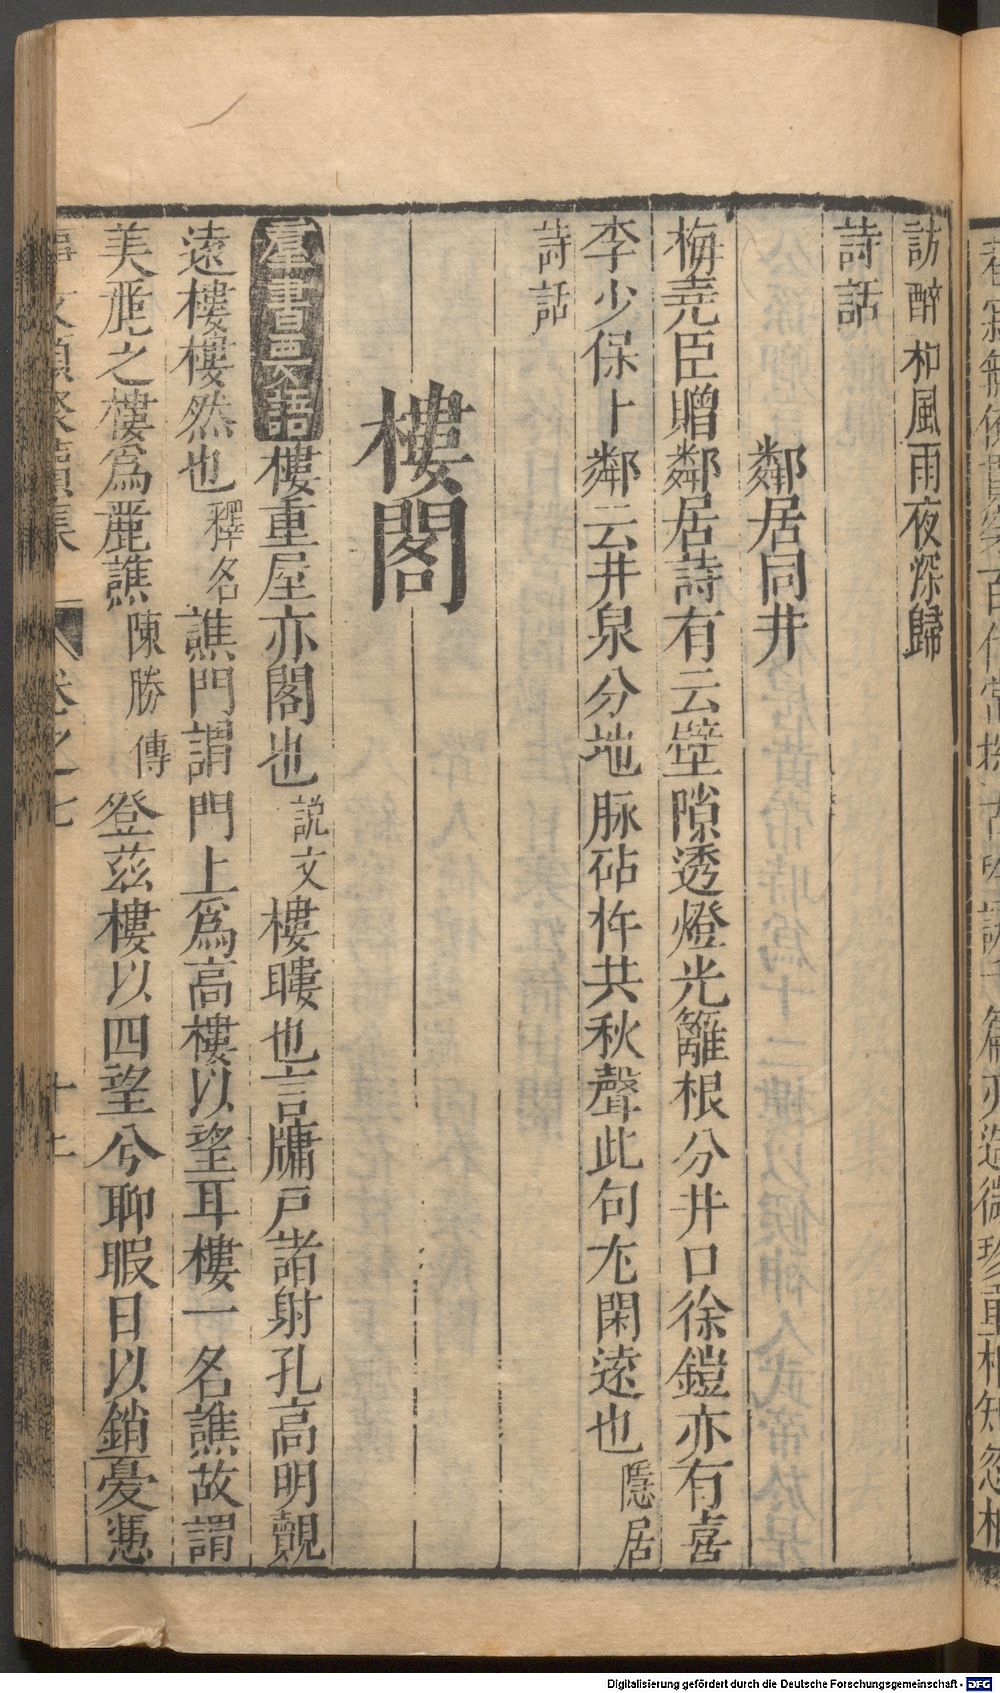 訪醉和風雨夜深歸
詩話
鄰居同井
梅堯臣贈鄰居詩有云壁隙透燈光籬根分井口徐鎧亦有喜
李少保卜鄰云井泉分地脉砧杵共秋聲此句尢閑逺也隱居
詩話
樓閣
羣書要語樓重屋亦閣也説文樓䁖也言牖戸諸射孔高明覿
逺樓樓然也釋名譙門謂門上爲高樓以望耳樓一名譙故謂
美麗之樓爲麗譙陳勝傳登茲樓以四望兮聊暇日以銷憂憑
事文類聚續集 卷之七 十二
Digitalisierung gefördert durch die Deutsche Forschungsgemeinschaft - DFG